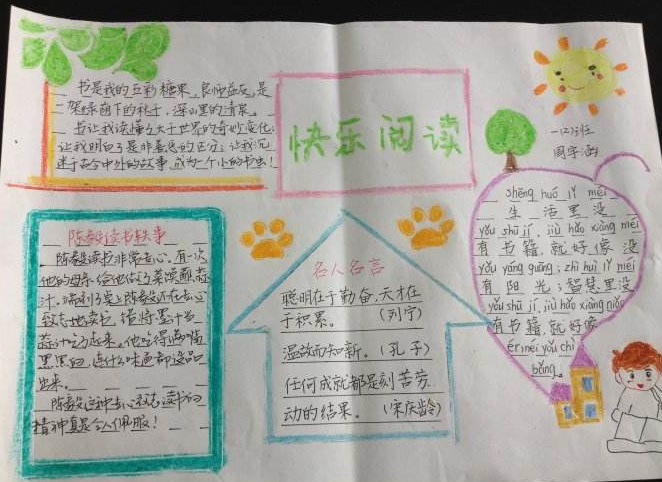 书是我的五彩糖果、良师益友,是
一架绿荫下的秋千,深山里的清泉。
书让我读懂了大千世界的奇妙变化;
让我明白了是非善恶的区分;让我沉
迷于古今中外的故事,成为一个小书虫!
快乐阅读
一(2)班
周宇涵
陈毅读书轶事
陈毅读书非常专心,有一次
他的母亲给他
汁,
黑黑的,连什么味道都没品
出来。
陈毅这种专心致志读书的
精神真是令人佩服!
名人名言
聪明在于勤奋,天才在
于积累。 (列宁)
温故而知新。(孔子)
任何成就都是刻苦劳
动的结果。(宋庆龄)
shēng huó lǐ méi
生活里没
yǒu shū jí, jiù hǎo xiàng méi
有书籍,就好像没
yǒu yáng guāng; zhì huì lǐ méi
有阳光;智慧里没
yǒu shū jí, jiù hǎo xiàng niǎo
有书籍,就好像
ér méi yǒu chì
bǎng。